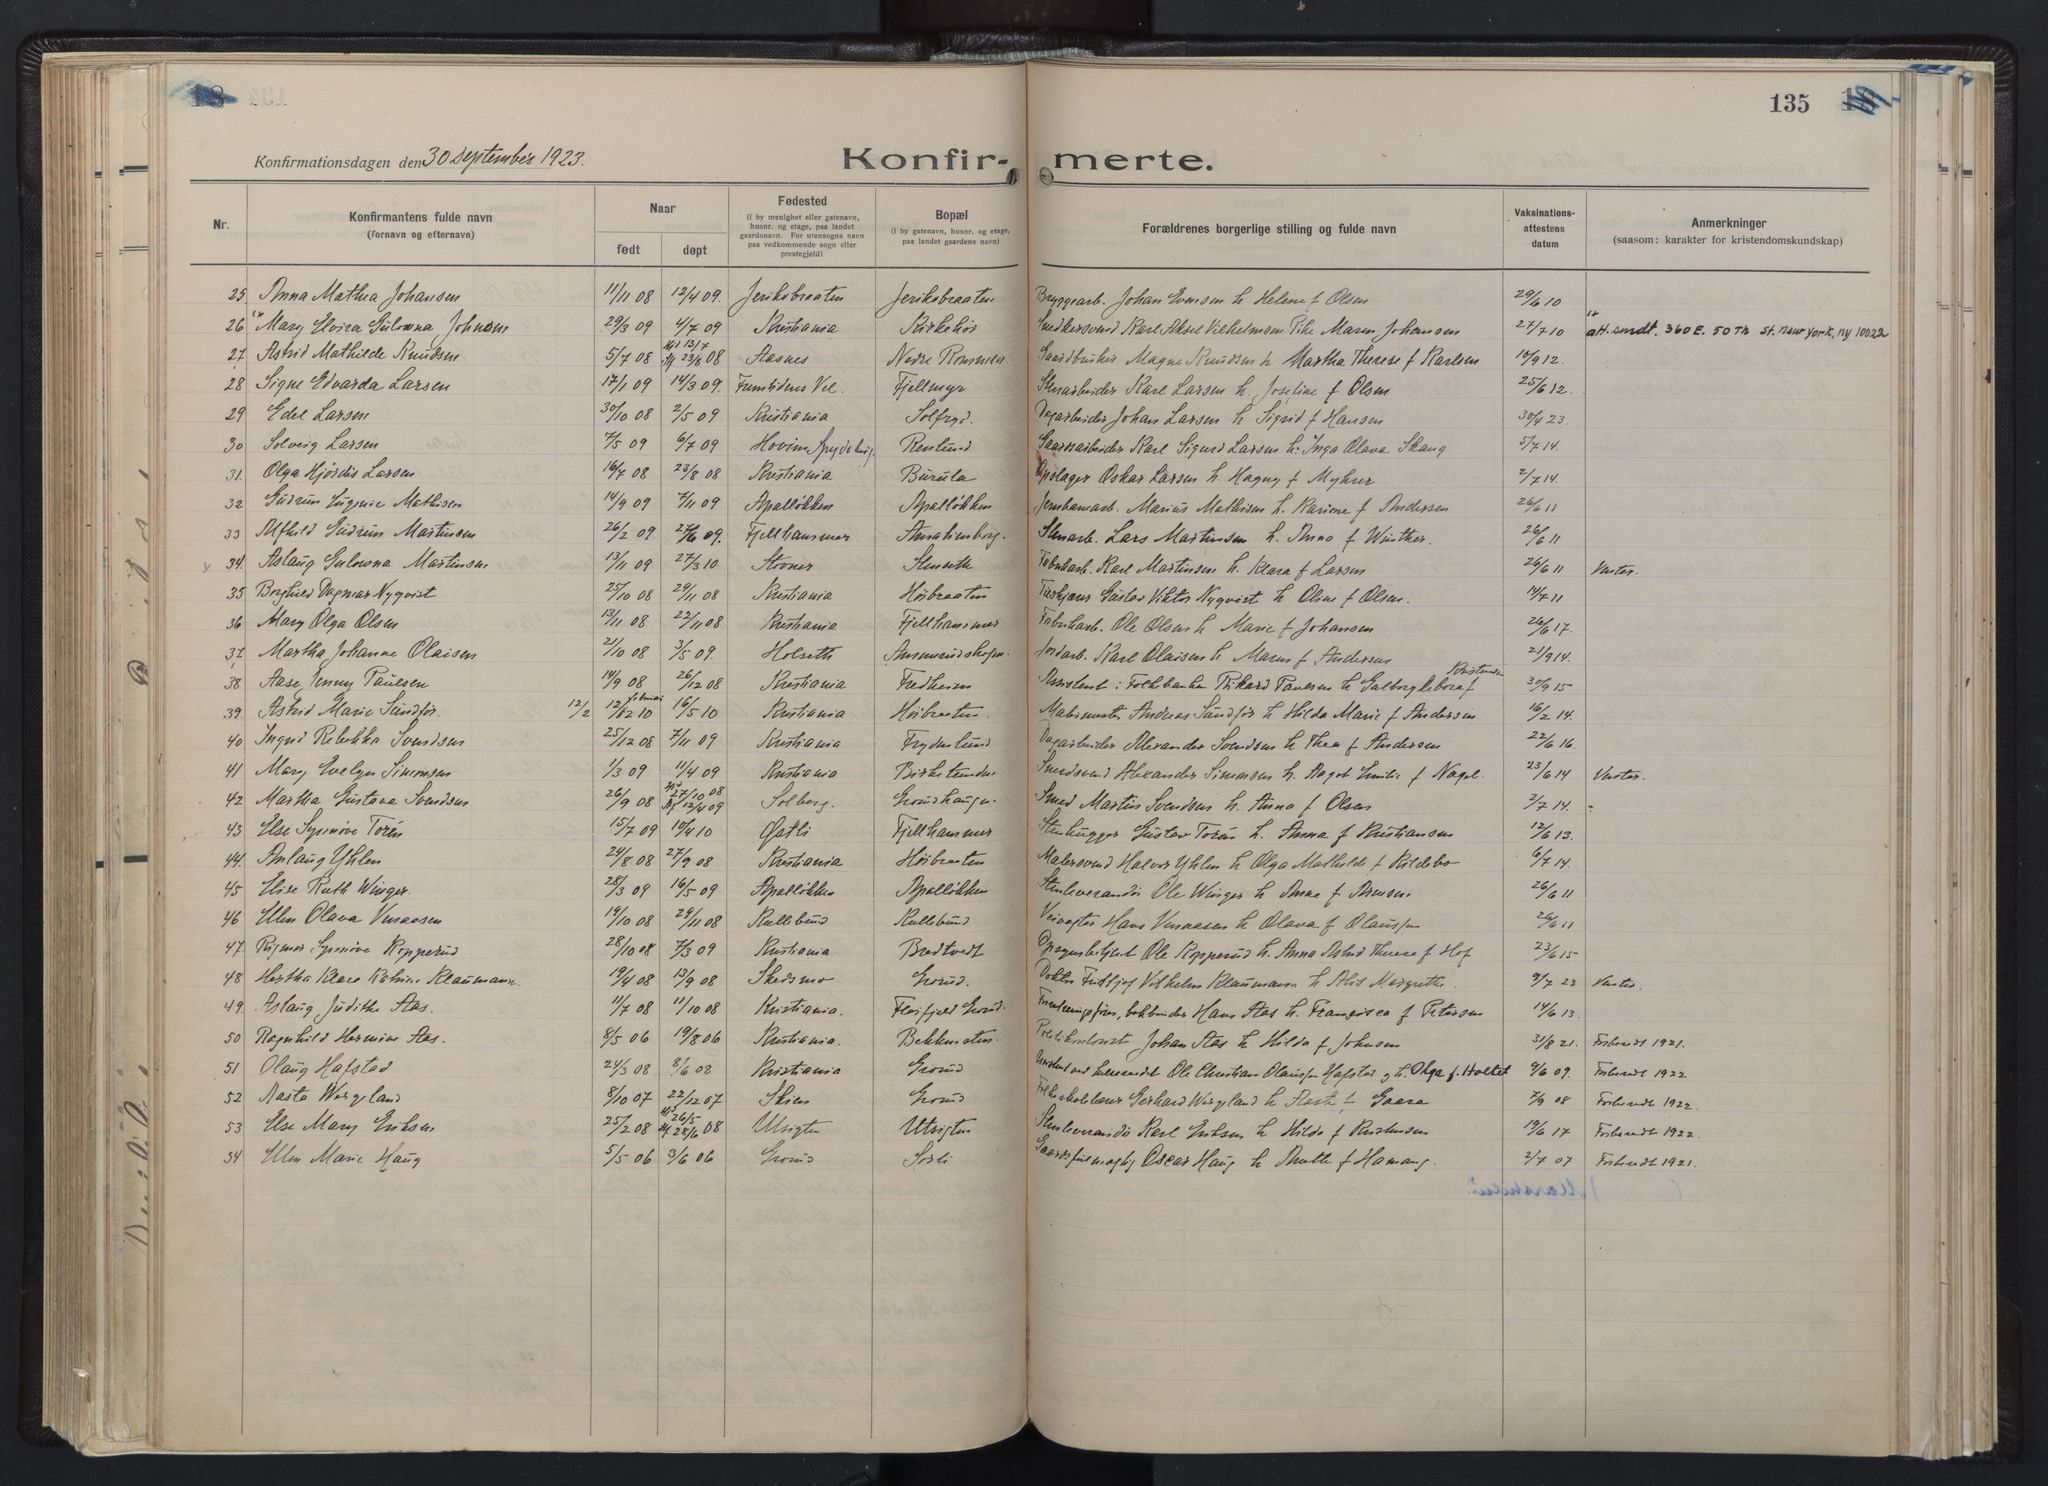 135
Konfirmationsdagen den 30 september 1923.
Konfir- merte.
Nr.
Konfirmantens fulde navn
(fornavn og efternavn)
Naar
født
døpt
Fødested
(i by menighet eller gatenavn,
husnr. og etage, paa landet
gaardsnavn. For utensogns navn
paa vedkommende sogn eller
prestegjeld)
Bopæl
(i by gatenavn, husnr. og etage,
paa landet gaardens navn)
Forældrenes borgerlige stilling og fulde navn
Vaksinations-
attestens
datum
Anmerkninger
(saasom: karakter for kristendomskundskap)
25 Anna Mathea Johansen 11/11 08 12/4 09. Jeriksbraaten Jeriksbraaten Bryggearb. Johan Evensen h Helene f Olsen 29/6 10
26 Mary Elvira Gulowna Johnsen 29/3 09 4/7 09 Kristiania Karl Aksel Vilhelmsen Maren Johansen 27/7 10 att. sendt. 360 E. 50 Th St. new york, ny 10022
27 Astrid Mathilde Knudsen 5/7 08 23/8 08 Aasnes Nedre Rommen Gaardbruker Magne Knudsen h Martha Therese f Karlsen 14/9 12.
28 Signe Edvarda Larsen 17/1 09 14/3 09. Fremtidens Vel. Fjellmyr Stenarbeider Karl Larsen h. Josefine f Olsen 25/6 12.
29 Edel Larsen 30/10 08 2/5 09 Kristiania Solbryd. Dagarbeider Johan Larsen h Sigrid f Hansen 30/4 23.
30 Solveig Larsen 7/5 09 6/7 09 Hovin Spydeberg. Renlund Gaardsarbeider Karl Sigurd Larsen h. Inga Olava Skaug 5/7 14.
31. Olga Hjørdis Larsen 16/7 08 23/8 08 Kristiania Oskar Larsen h. Hagny f Myhrer 2/7 14.
32 Gudrun Eugenie Mathisen 14/9 09 7/11 09 Apalløkken Apalløkken Marius Mathisen h. Karine f Andersen 26/6 11
33 Alfhild Gudrun Martinsen 26/2 09 27/6 09. Fjellhammer Amalienborg. Stenarb. Lars Martinsen h. Anna f Winther. 26/6 11
34. Aslaug Gulowna Martinsen 13/11 09 27/3 10 Stovner Stenseth Fabrikarb. Karl Martinsen h. Klara f Larsen 26/6 11
35 Borghild Dagmar Nyqvist 25/10 08 29/11 08 Kristiania Høibraaten Gustav Viktor Nyqvist h Oline f Olsen. 14/7 11
36 Mary Olga Olsen 13/11 08 22/11 08 Kristiania Fjellhammer Fabrikarb. Ole Olsen h Marie f Johansen 26/6 17.
37 Martha Johanne Olaisen 21/10 08 3/5 09. Holseth Jordarb. Karl Olaisen h Maren f Andersen 21/9 14.
38 Aase Jenny Paulsen 14/9 08 26/12 08 Kristiania Fredheim Assistent i Folkebanken Rikard Paulsen h 30/9 15
39. Astrid Marie Sundfør. 12/2 februar 10 16/5 10 Kristiania Høibraaten. Andreas Sundfør h Hilda Marie f Andersen 16/2 14.
40 Ingrid Rebekka Svendsen 25/12 08 7/11 09 Kristiania Frydenlund Dagarbeider Alexander Svendsen h Thea f Andersen 22/6 16.
41 Mary Evelyn Simonsen 1/3 09 11/4 09 Kristiania Smedsvend Alexander Simonsen h. Aagot Emilie f Nagel. 23/6 14
42 Martha Gustava Svendsen 26/9 08 27/10 08 12/4 09 Solberg. Grorudhaugen Smed Martin Svendsen h. Anna f Olsen 2/7 14.
43 Else Synnøve Torén 15/7 09 10/4 10 Østli Fjellhammer Stenhugger Gustav Torén h. Anna f Kristiansen 12/6 13.
44. Aslaug Yhlen 24/8 08 27/9 08 Kristiania Høibraaten Malersvend Halvor Yhlen h Olga Mathilde f Kildebo 6/7 14.
45 Elise Ruth Winger. 28/3 09 16/5 09 Apalløkken Apalløkken Stenleverandør Ole Winger h Anna f Arnesen 26/6 11
46 Ellen Olava Vennaasen 19/10 08 29/11 08 Kullebund Kullebund Veivogter Hans Vennaasen h Olava f Olaussen 26/6 11
47. Rigmor Synnøve Kopperud 28/10 08 7/3 09 Kristiania Bredtvedt Ole Kopperud h. Anna Astrid Therese f Hof 23/6 15
48 Hertha Klara Katrine Klaumann 19/4 08 13/9 08 Skedsmo Grorud. Doktor Fridtjof Vilhelm Klaumann h Alis Margrethe. 9/7 23
49. Aslaug Judithe Aas. 11/7 08 11/10 08 Kristiania. Flaifjell Grorud. Forretningsfører, bokbinder Hans Aas h. Francisca f Petersen 14/6 13.
50 Ragnhild Hermine Aas. 8/5 06 19/8 06 Kristiania. Bekkusaten. Politikonstabel Johan Aas h Hilda f Johnsen 31/8 21. Forberedt 1921.
51 Olaug Hafstad 24/3 08 8/6 08 Kristiania Grorud Ole Christian Olaussen Hafstad og h. Olga f. Holtet 9/6 09. Forberedt 1922
52 Aasta Wergeland 8/10 07 22/12 07 Skien Grorud Folkeskolelærer Gerhard Wergeland h Aasta f Gaara 7/9 08 Forberedt 1922.
53 Else Mary Eriksen 25/2 08 26/5 28/6 08 Utsigten Utsigten Stenleverandør Karl Eriksen h Hilda f Kristensen 19/6 17 Forberedt 1922.
54 Ellen Marie Haug 5/5 06 3/6 06 Grorud Sørli Oscar Haug h f Hamang. 2/7 07 Forberedt 1921.